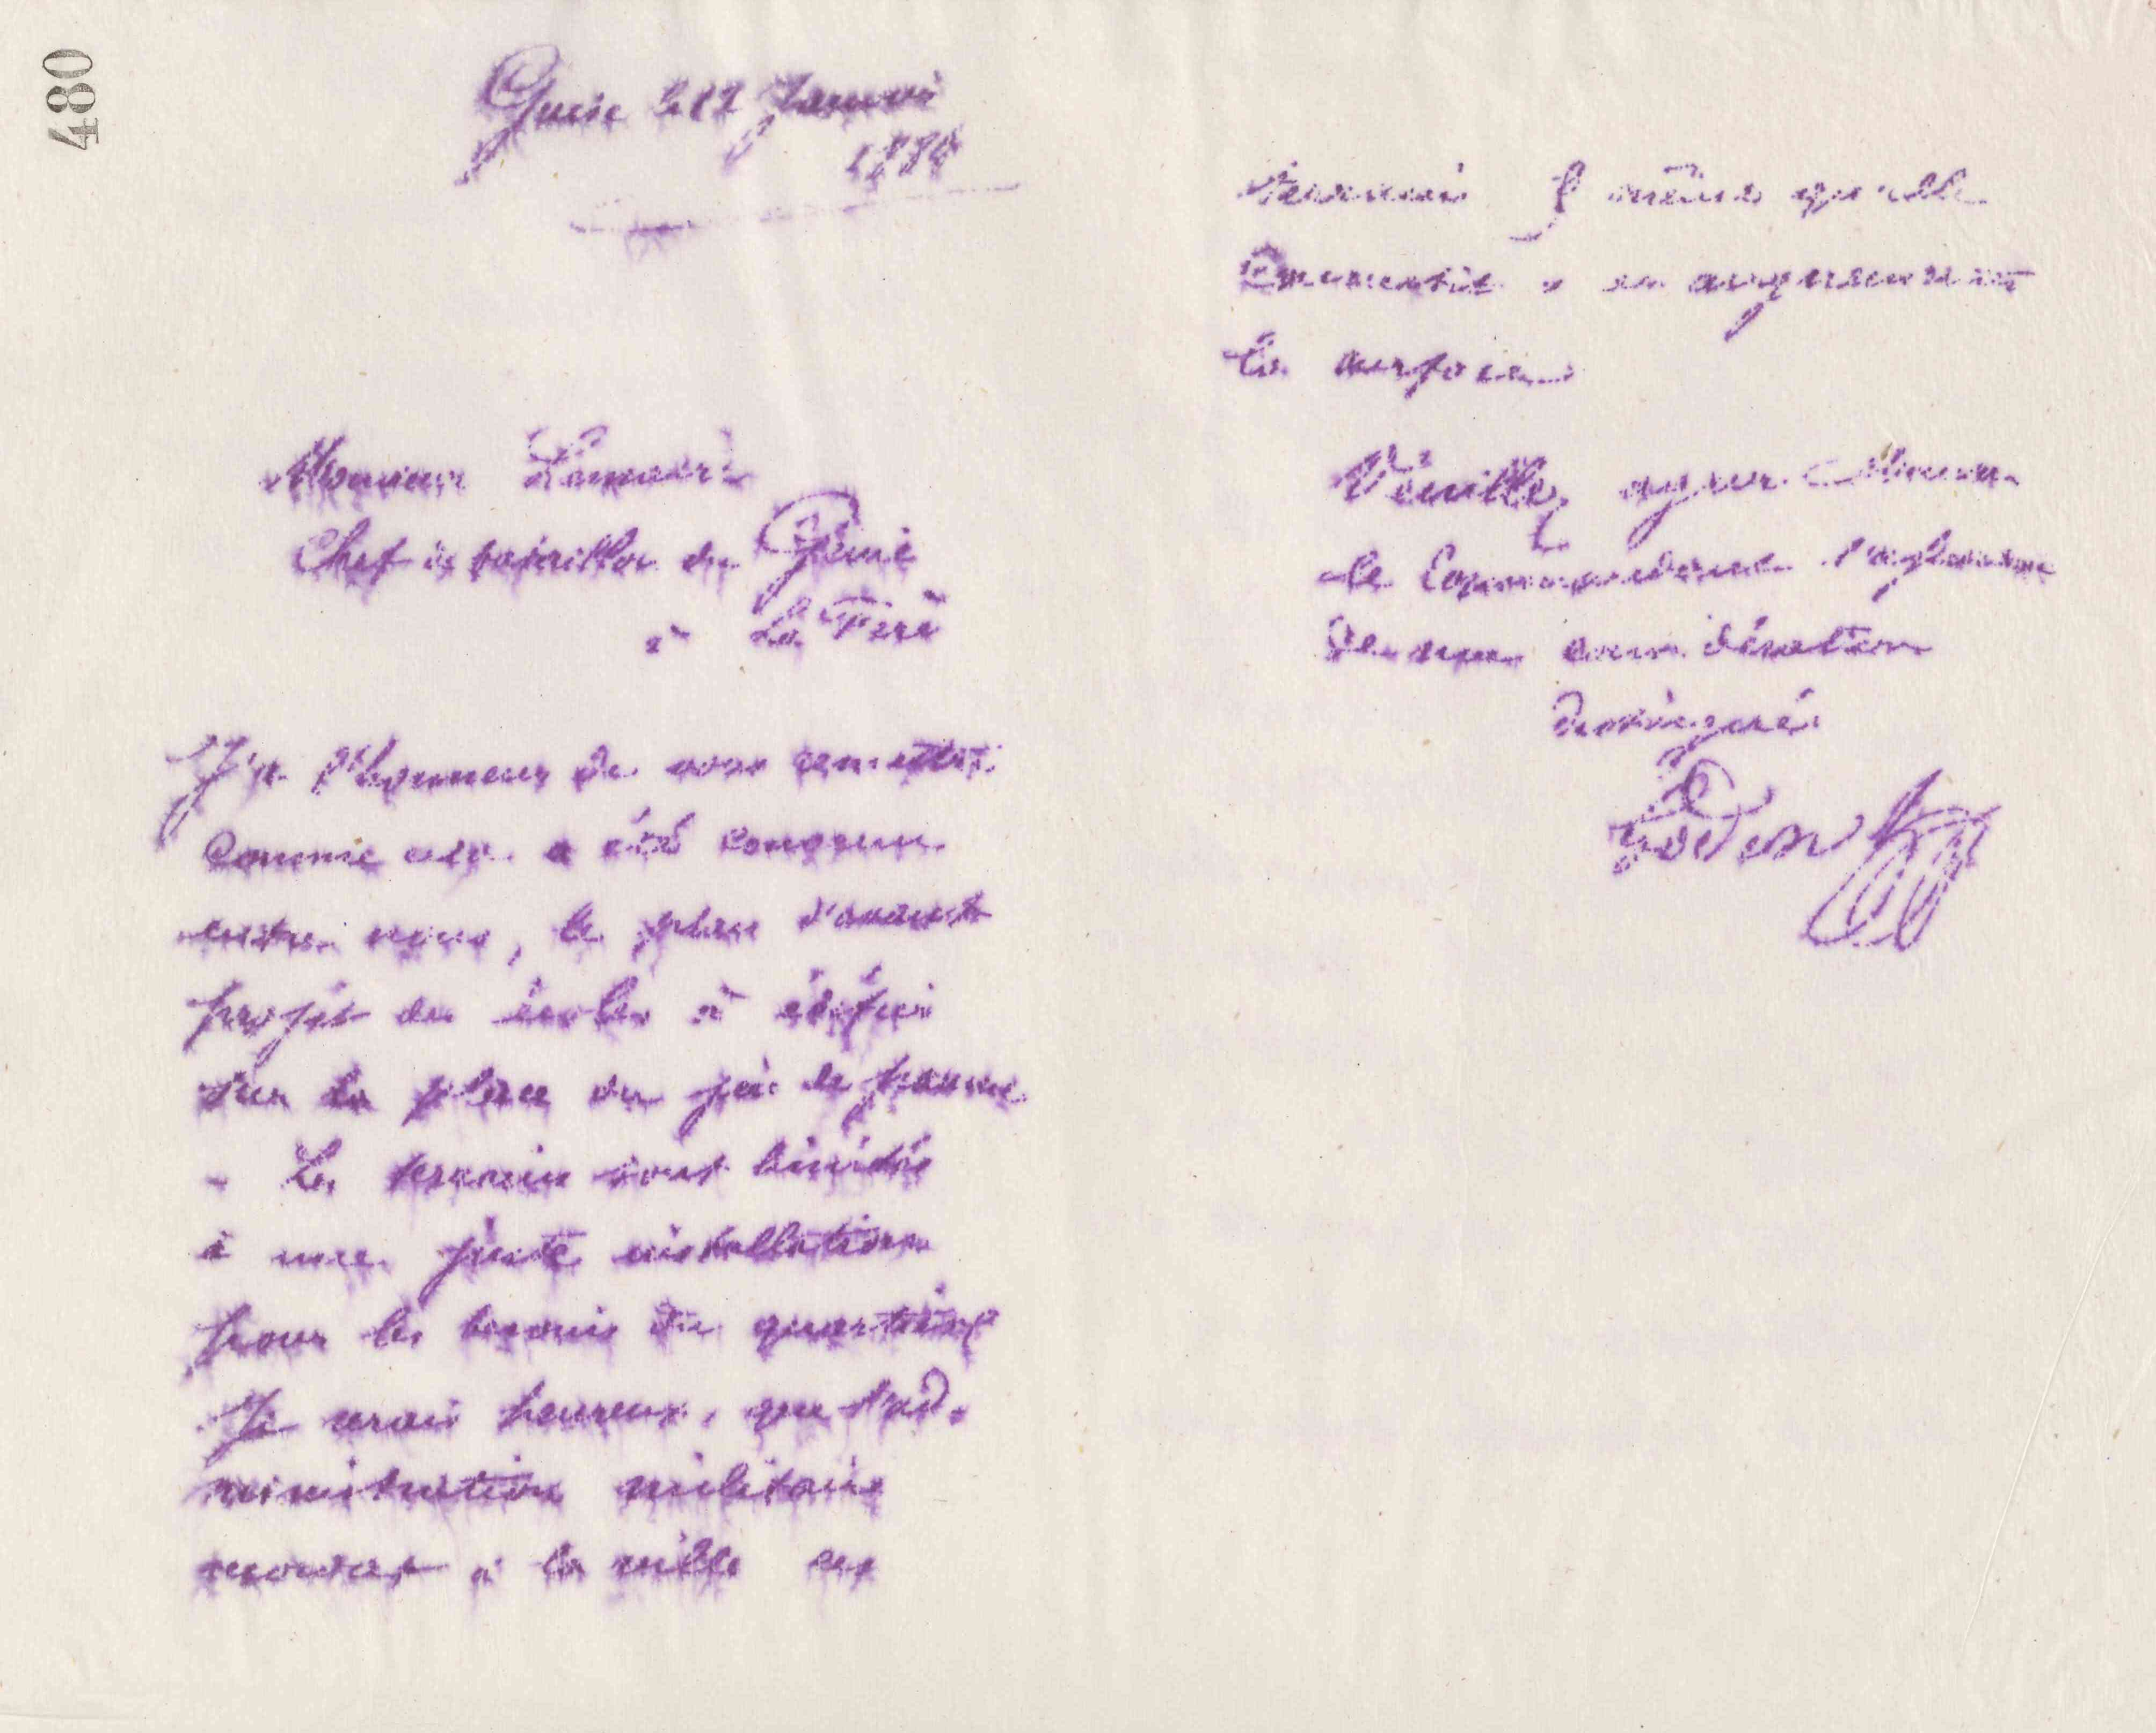 480
Guise le 12 Janvier
188
Monsieur
Chef de bataillon du Génie
à La Fère
J'ai l'honneur de vous remettre
comme cela a été convenu
entre nous, le plan d'avant
projet des écoles à édifier
sur la place du jeu de paume
- Les terrains sont limités
à une juste installation
pour les besoins du quartier
Je serais heureux, que l'ad-
ministration militaire
vendit à la ville ces
terrains &  même qu'elle
consentit à en augmenter
la surface
Veuillez agréer Monsieur
le Commandant l'assurance
de ma considération
distinguée
Godin